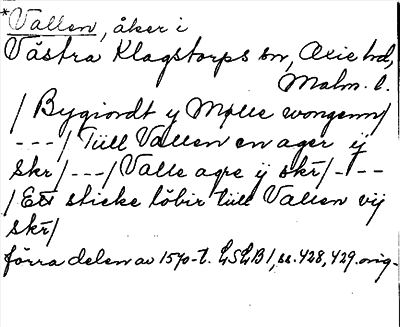 *Vallen, åker i
Västra Klagstorps sn, Oxie hd,
Malm. l.
/Bygiordt y Mølle wongenn/
---/Tüll Vallen en ager ÿ
skr/---/Valle agre ÿ skr/---
/Ett sticke löbir tüll Vallen vÿ
skr/
förra delen av 1570-t. LSLB1, ss. 428, 429. orig.